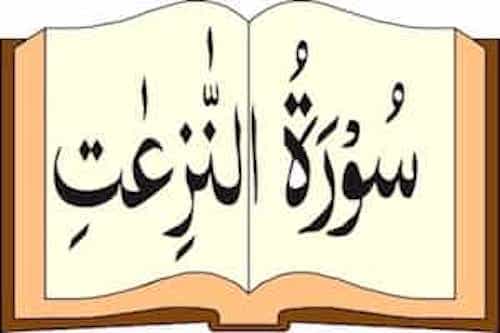 سُوْرَةُ النّٰزِعٰتِ